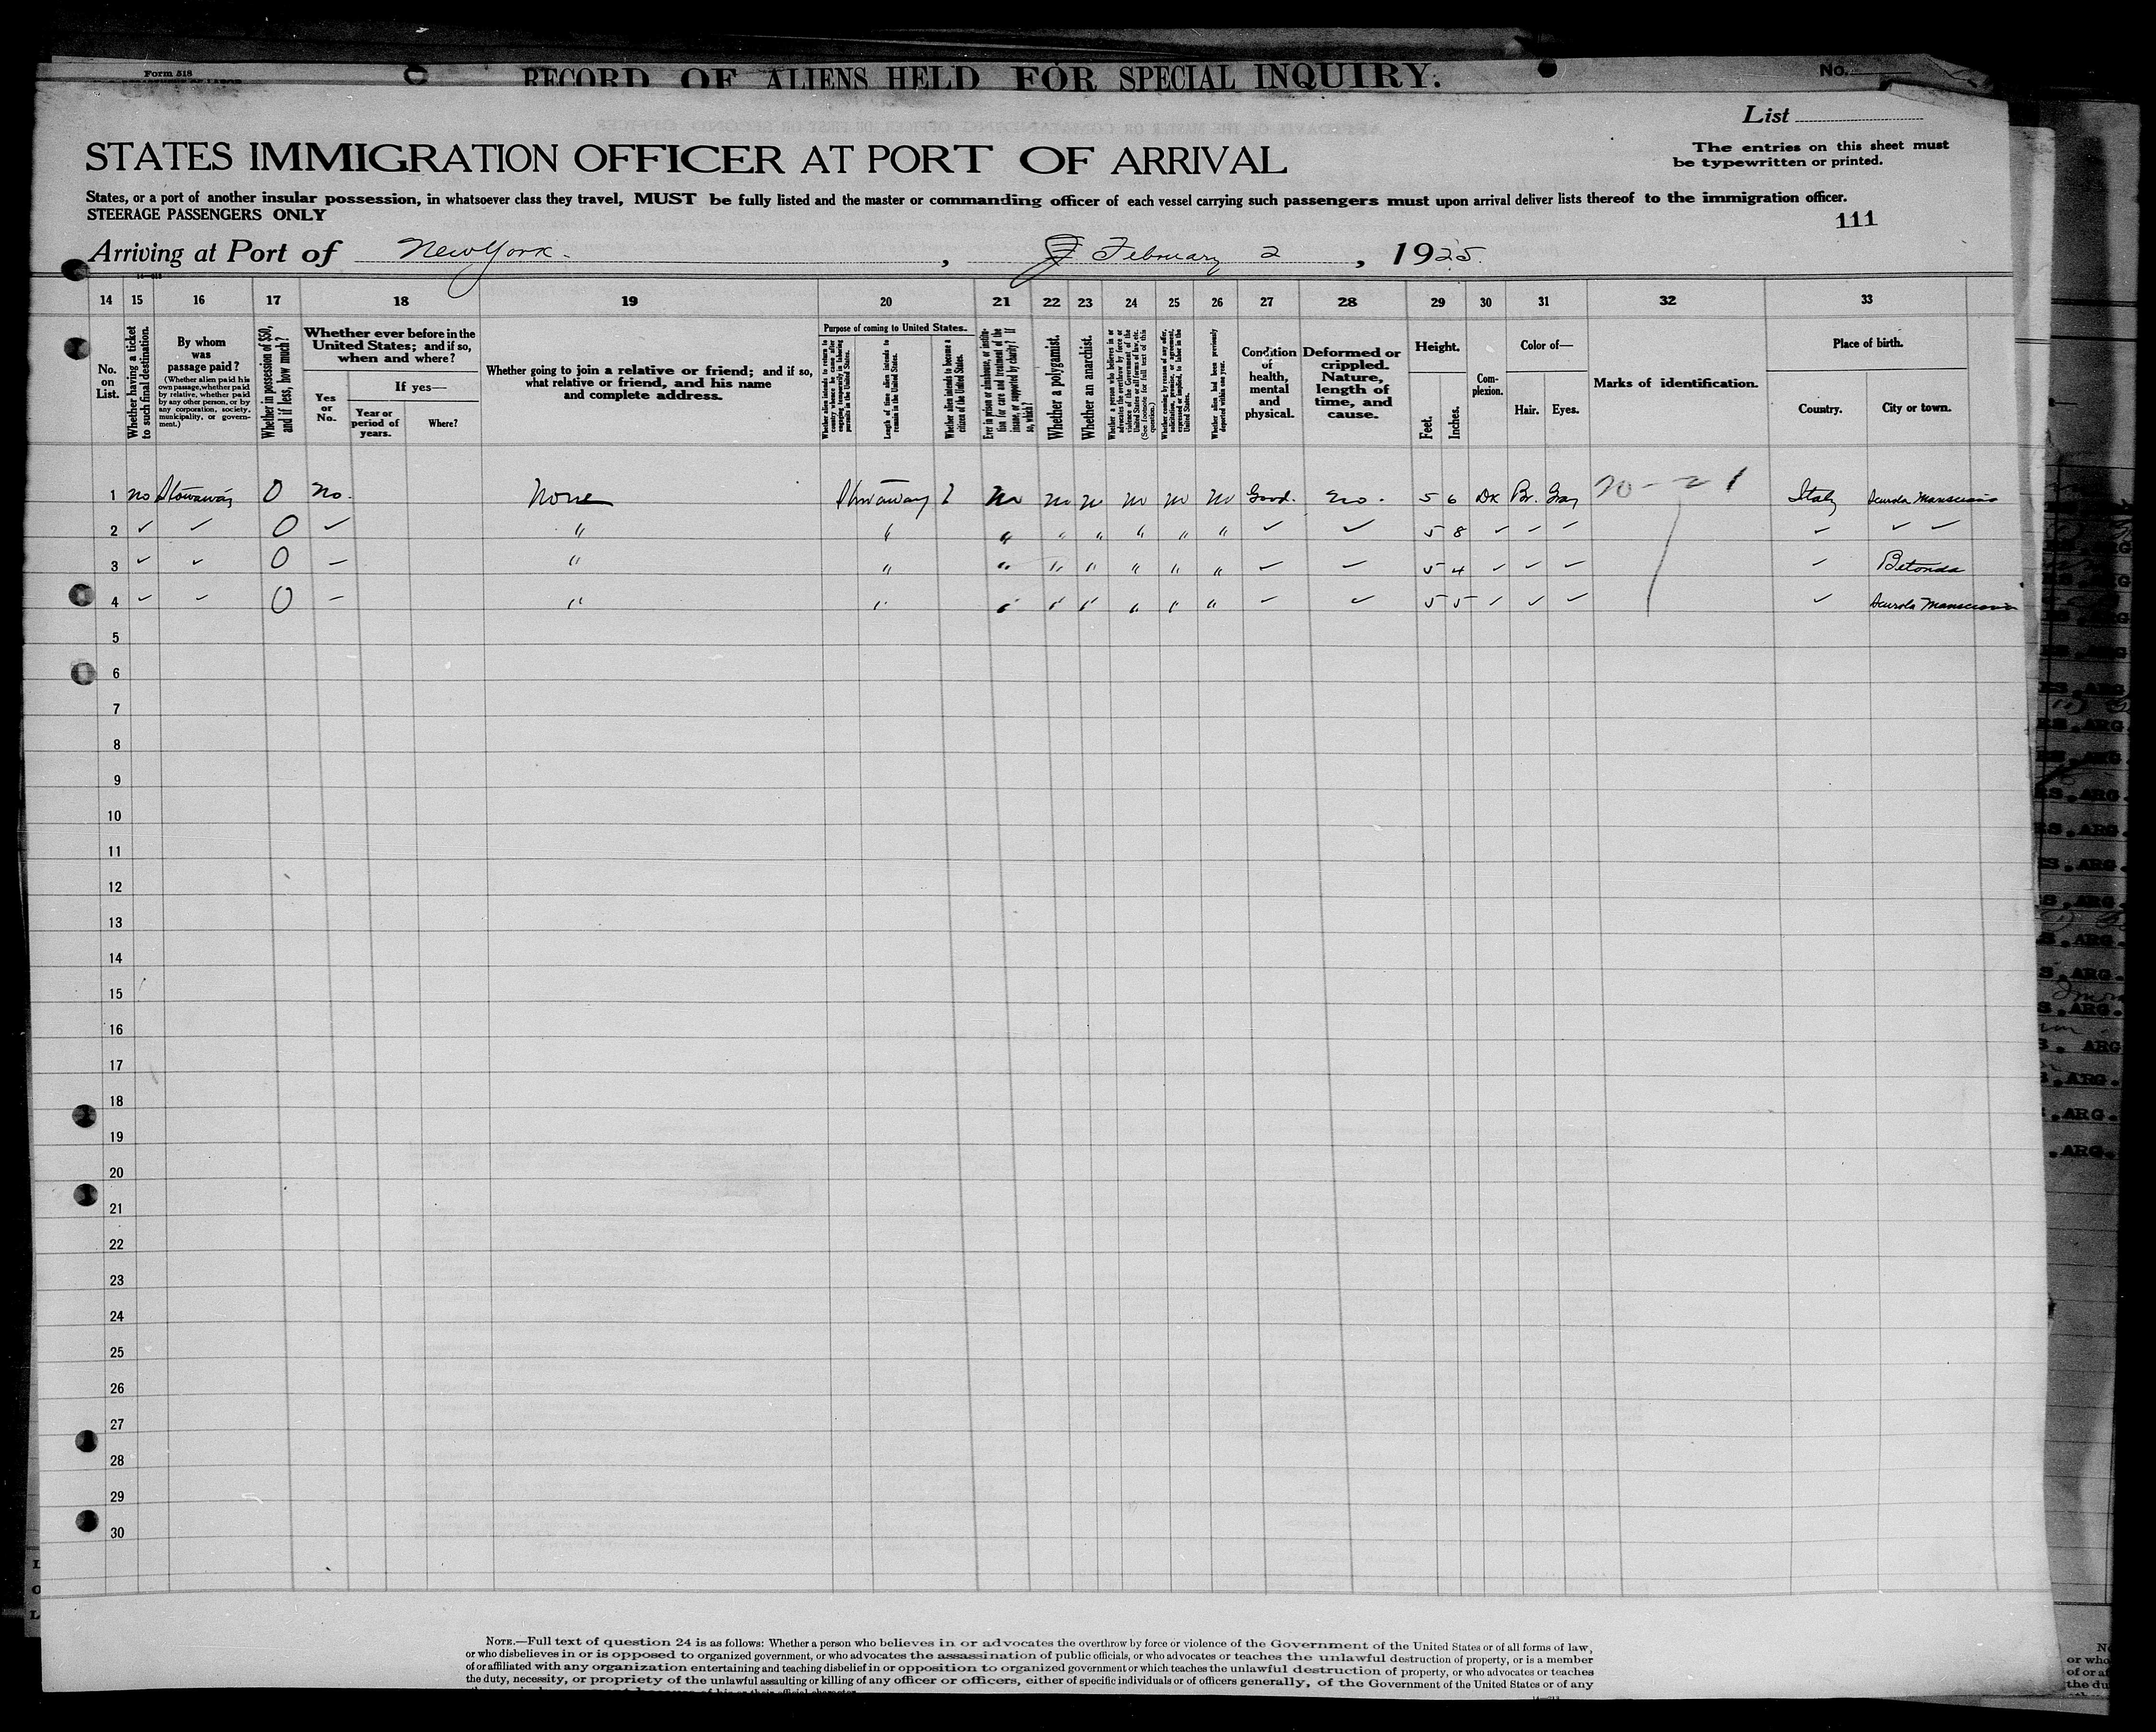 Form 518
RECORD OF ALIENS HELD FOR SPECIAL INQUIRY.
No.
List
STATES IMMIGRATION OFFICER AT PORT OF ARRIVAL
The entries on this sheet must
be typewritten or printed.
States, or a port of another insular possession, in whatsoever class they travel, MUST be fully listed and the master or commanding officer of each vessel carrying such passengers must upon arrival deliver lists thereof to the immigration officer.
STEERAGE PASSENGERS ONLY
111
Arriving at Port of New York. , February 2 , 1925
14 15 16 17 18 19 20 21 22 23 24 25 26 27 28 29 30 31 32 33
No. on List.
Whether having a ticket to such final destination.
By whom was passage paid?
(Whether alien paid his own passage, whether paid by relative, whether paid by any other person, or by any corporation, society, municipality, or government.)
Whether in possession of $50, and if less, how much?
Whether ever before in the United States; and if so, when and where?
Yes or No.
If yes—
Year or period of years.
Where?
Whether going to join a relative or friend; and if so, what relative or friend, and his name and complete address.
Purpose of coming to United States.
Whether alien intends to return to country whence he came after engaging temporarily in laboring pursuits in the United States.
Length of time alien intends to remain in the United States.
Whether alien intends to become a citizen of the United States.
Ever in prison or almshouse, or institution for care and treatment of the insane, or supported by charity? If so, which?
Whether a polygamist.
Whether an anarchist.
Whether a person who believes in or advocates the overthrow by force or violence of the Government of the United States or all forms of law, etc. (See footnote for full text of this question.)
Whether coming by reason of any offer, solicitation, promise, or agreement, expressed or implied, to labor in the United States.
Whether alien had been previously deported within one year.
Condition of health, mental and physical.
Deformed or crippled. Nature, length of time, and cause.
Height.
Feet.
Inches.
Complexion.
Color of—
Hair. Eyes.
Marks of identification.
Place of birth.
Country. City or town.
1 no Stowaway 0 no. None Stowaway ? No no no no no no Good. no. 5 6 Dk Br. Gray Italy
2 ✓ ✓ 0 ✓ " " " " " " " " ✓ ✓ 5 8 ✓ ✓ ✓ ✓ ✓ ✓
3 ✓ ✓ 0 – " " " " " " " " ✓ ✓ 5 4 ✓ ✓ ✓ ✓
4 ✓ ✓ 0 – " " " " " " " " ✓ ✓ 5 5 ✓ ✓ ✓ ✓
5
6
7
8
9
10
11
12
13
14
15
16
17
18
19
20
21
22
23
24
25
26
27
28
29
30
NOTE.—Full text of question 24 is as follows: Whether a person who believes in or advocates the overthrow by force or violence of the Government of the United States or of all forms of law,
or who disbelieves in or is opposed to organized government, or who advocates the assassination of public officials, or who advocates or teaches the unlawful destruction of property, or is a member
of or affiliated with any organization entertaining and teaching disbelief in or opposition to organized government or which teaches the unlawful destruction of property, or who advocates or teaches
the duty, necessity, or propriety of the unlawful assaulting or killing of any officer or officers, either of specific individuals or of officers generally, of the Government of the United States or of any